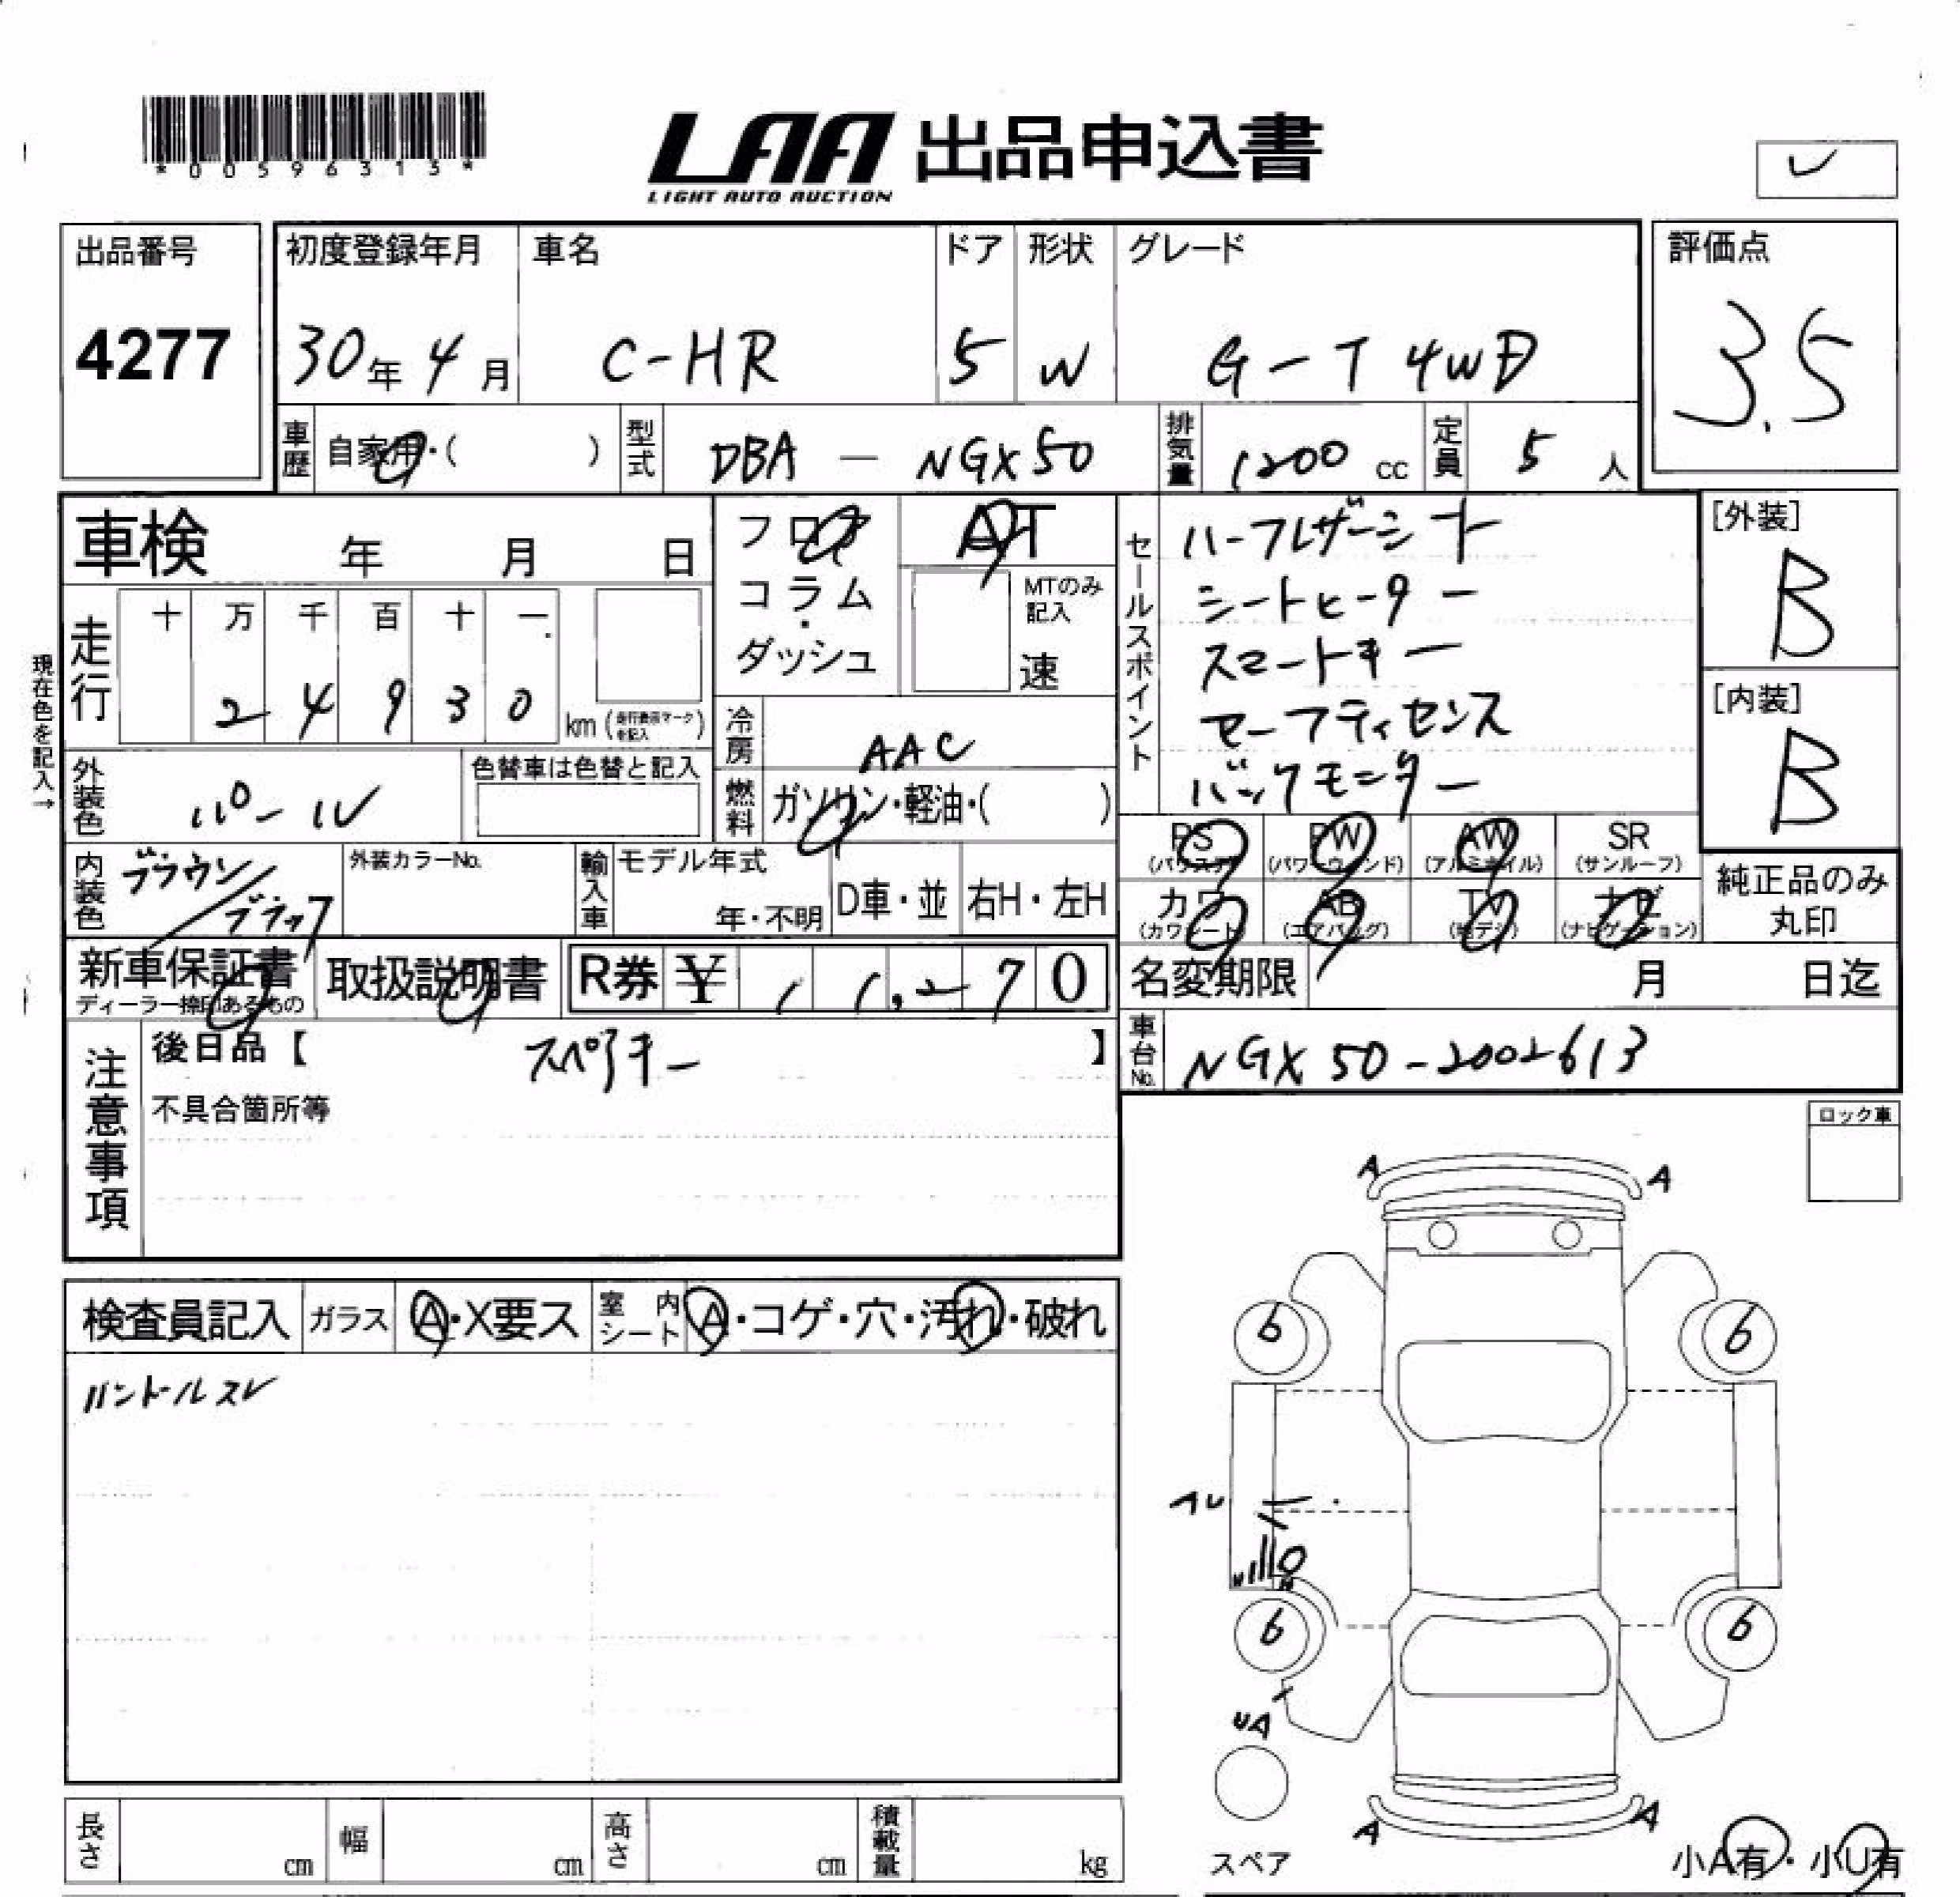 *0059631５*
LAA 出品申込書
LIGHT AUTO AUCTION
出品番号 初度登録年月 車名 ドア 形状 グレード 評価点
4277 30年 4月 C-HR 5 W G-T 4WD 3.5
車歴 自家用・( ) 型式 DBA - NGX50 排気量 1200 cc 定員 5 人
車検 年 月 日 フロア AT セールスポイント ハーフレザーシート [外装]
コラム・ MTのみ記入 シートヒーター B
走行 十 万 千 百 十 一 ダッシュ 速 スマートキー
2 4 9 3 0 km (走行換算マークを記入) セーフティセンス [内装]
現在色を記入→ 冷房 AAC バックモニター B
外装色 パール 色替車は色替と記入 燃料 ガソリン・軽油・( )
PS (パワステ) PW (パワーウィンド) AW (アルミホイル) SR (サンルーフ)
内装色 ブラウン/ブラック 外装カラーNo. 輸入車 モデル年式 年・不明 D車・並 右H・左H
カワ (カワシート) AB (エアバッグ) TV (地デジ) ナビ (ナビゲーション) 純正品のみ丸印
新車保証書 ディーラー捺印あるもの 取扱説明書 R券 ¥ 1 1,270 名変期限 月 日迄
注意事項 後日品【 スペアキー 】 車台No. NGX50-2002613
不具合箇所等
ロック車
A A
検査員記入 ガラス A・X要ス 室内シート A・コゲ・穴・汚れ・破れ
6 6
ハンドルスレ
AU
6 6
UA
A A
長さ cm 幅 cm 高さ cm 積載量 kg
スペア 小A有・小U有